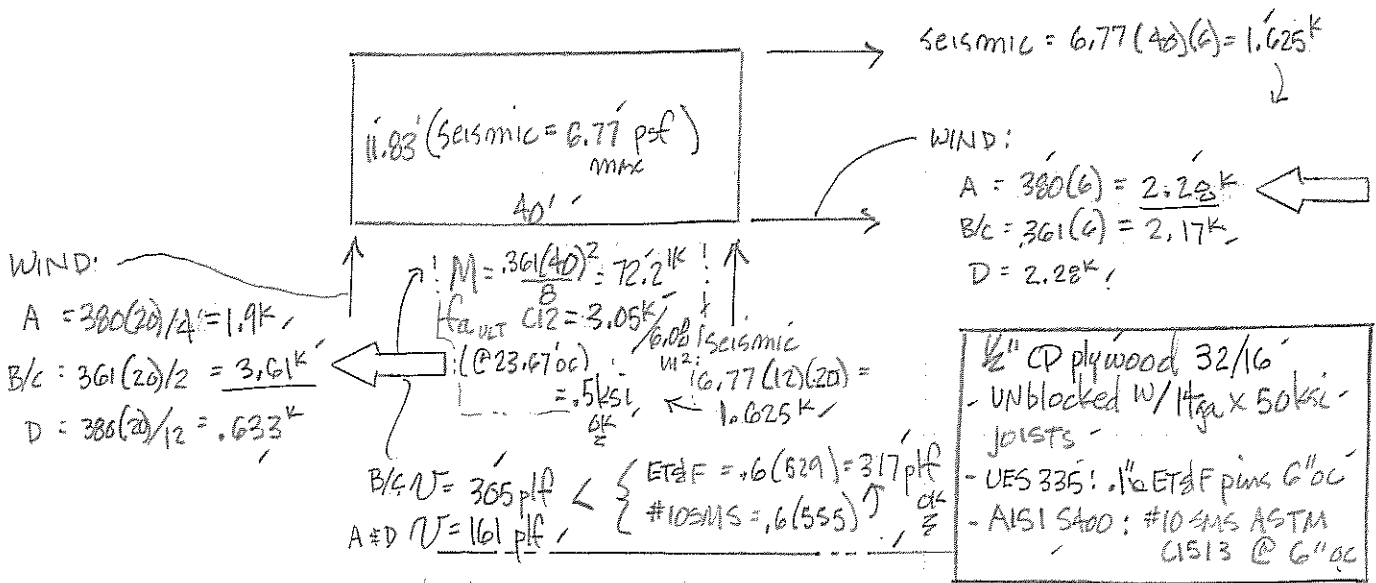 seismic = 6.77(40)(6) = 1.625ᴷ
11.83' (seismic = 6.77 psf)
max
40'
WIND:
A = 380(6) = 2.28ᴷ
B/C = .361(6) = 2.17ᴷ
D = 2.28ᴷ
WIND:
A = 380(20)/4 = 1.9ᴷ
B/C = 361(20)/2 = 3.61ᴷ
D = 380(20)/12 = .633ᴷ
M = .361(40)²/8 = 72.2'ᴷ
fa ULT C12 = 3.05ᴷ/6.08 in²
(@ 23.67' oc)
= .5ksi
ok
seismic
6.77(12)(20) =
1.625ᴷ
B/C V = 305 plf < { ET&F = .6(529) = 317 plf
#10SMS = .6(555) ok
A & D V = 161 plf
1/2" CD plywood 32/16
- UNblocked W/14ga x 50ksi
joists
- UES 335: .1"ø ET&F pins 6" oc
- AISI S400: #10 SMS ASTM
C1513 @ 6" oc